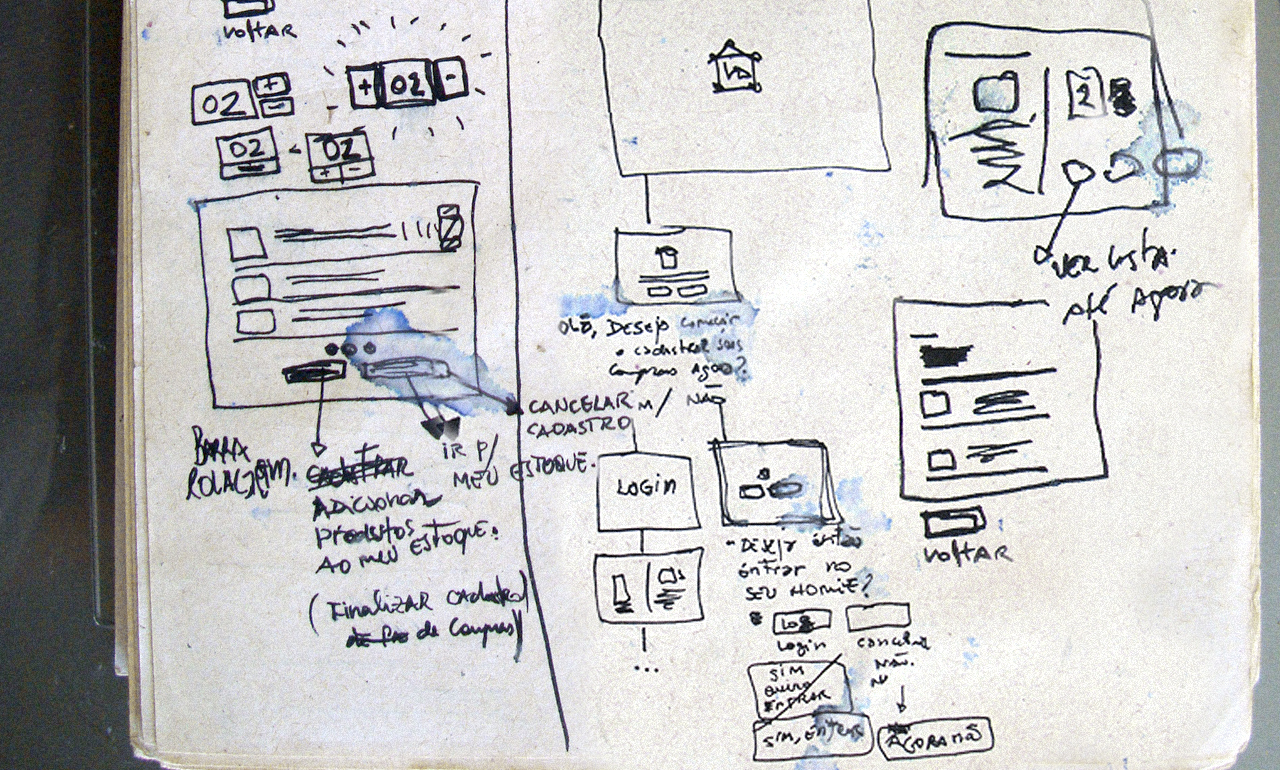 VOLTAR
02 + -
+ 02 -
02
02
+ -
BARRA
ROLAGEM.
ADICIONAR
PRODUTOS
AO MEU ESTOQUE.
(FINALIZAR CADASTRO
de Compras)
IR P/
MEU ESTOQUE.
CANCELAR
CADASTRO
OLÁ, DESEJA começar
a cadastrar suas
compras Agora?
NÃO
LOGIN
...
DESEJA então
entrar no
SEU HOMIE?
Login
cancelar
NÃO.
SIM
quero
ENTRAR
SIM,
AGORA NÃO
2
VER LISTA
Até Agora
VOLTAR